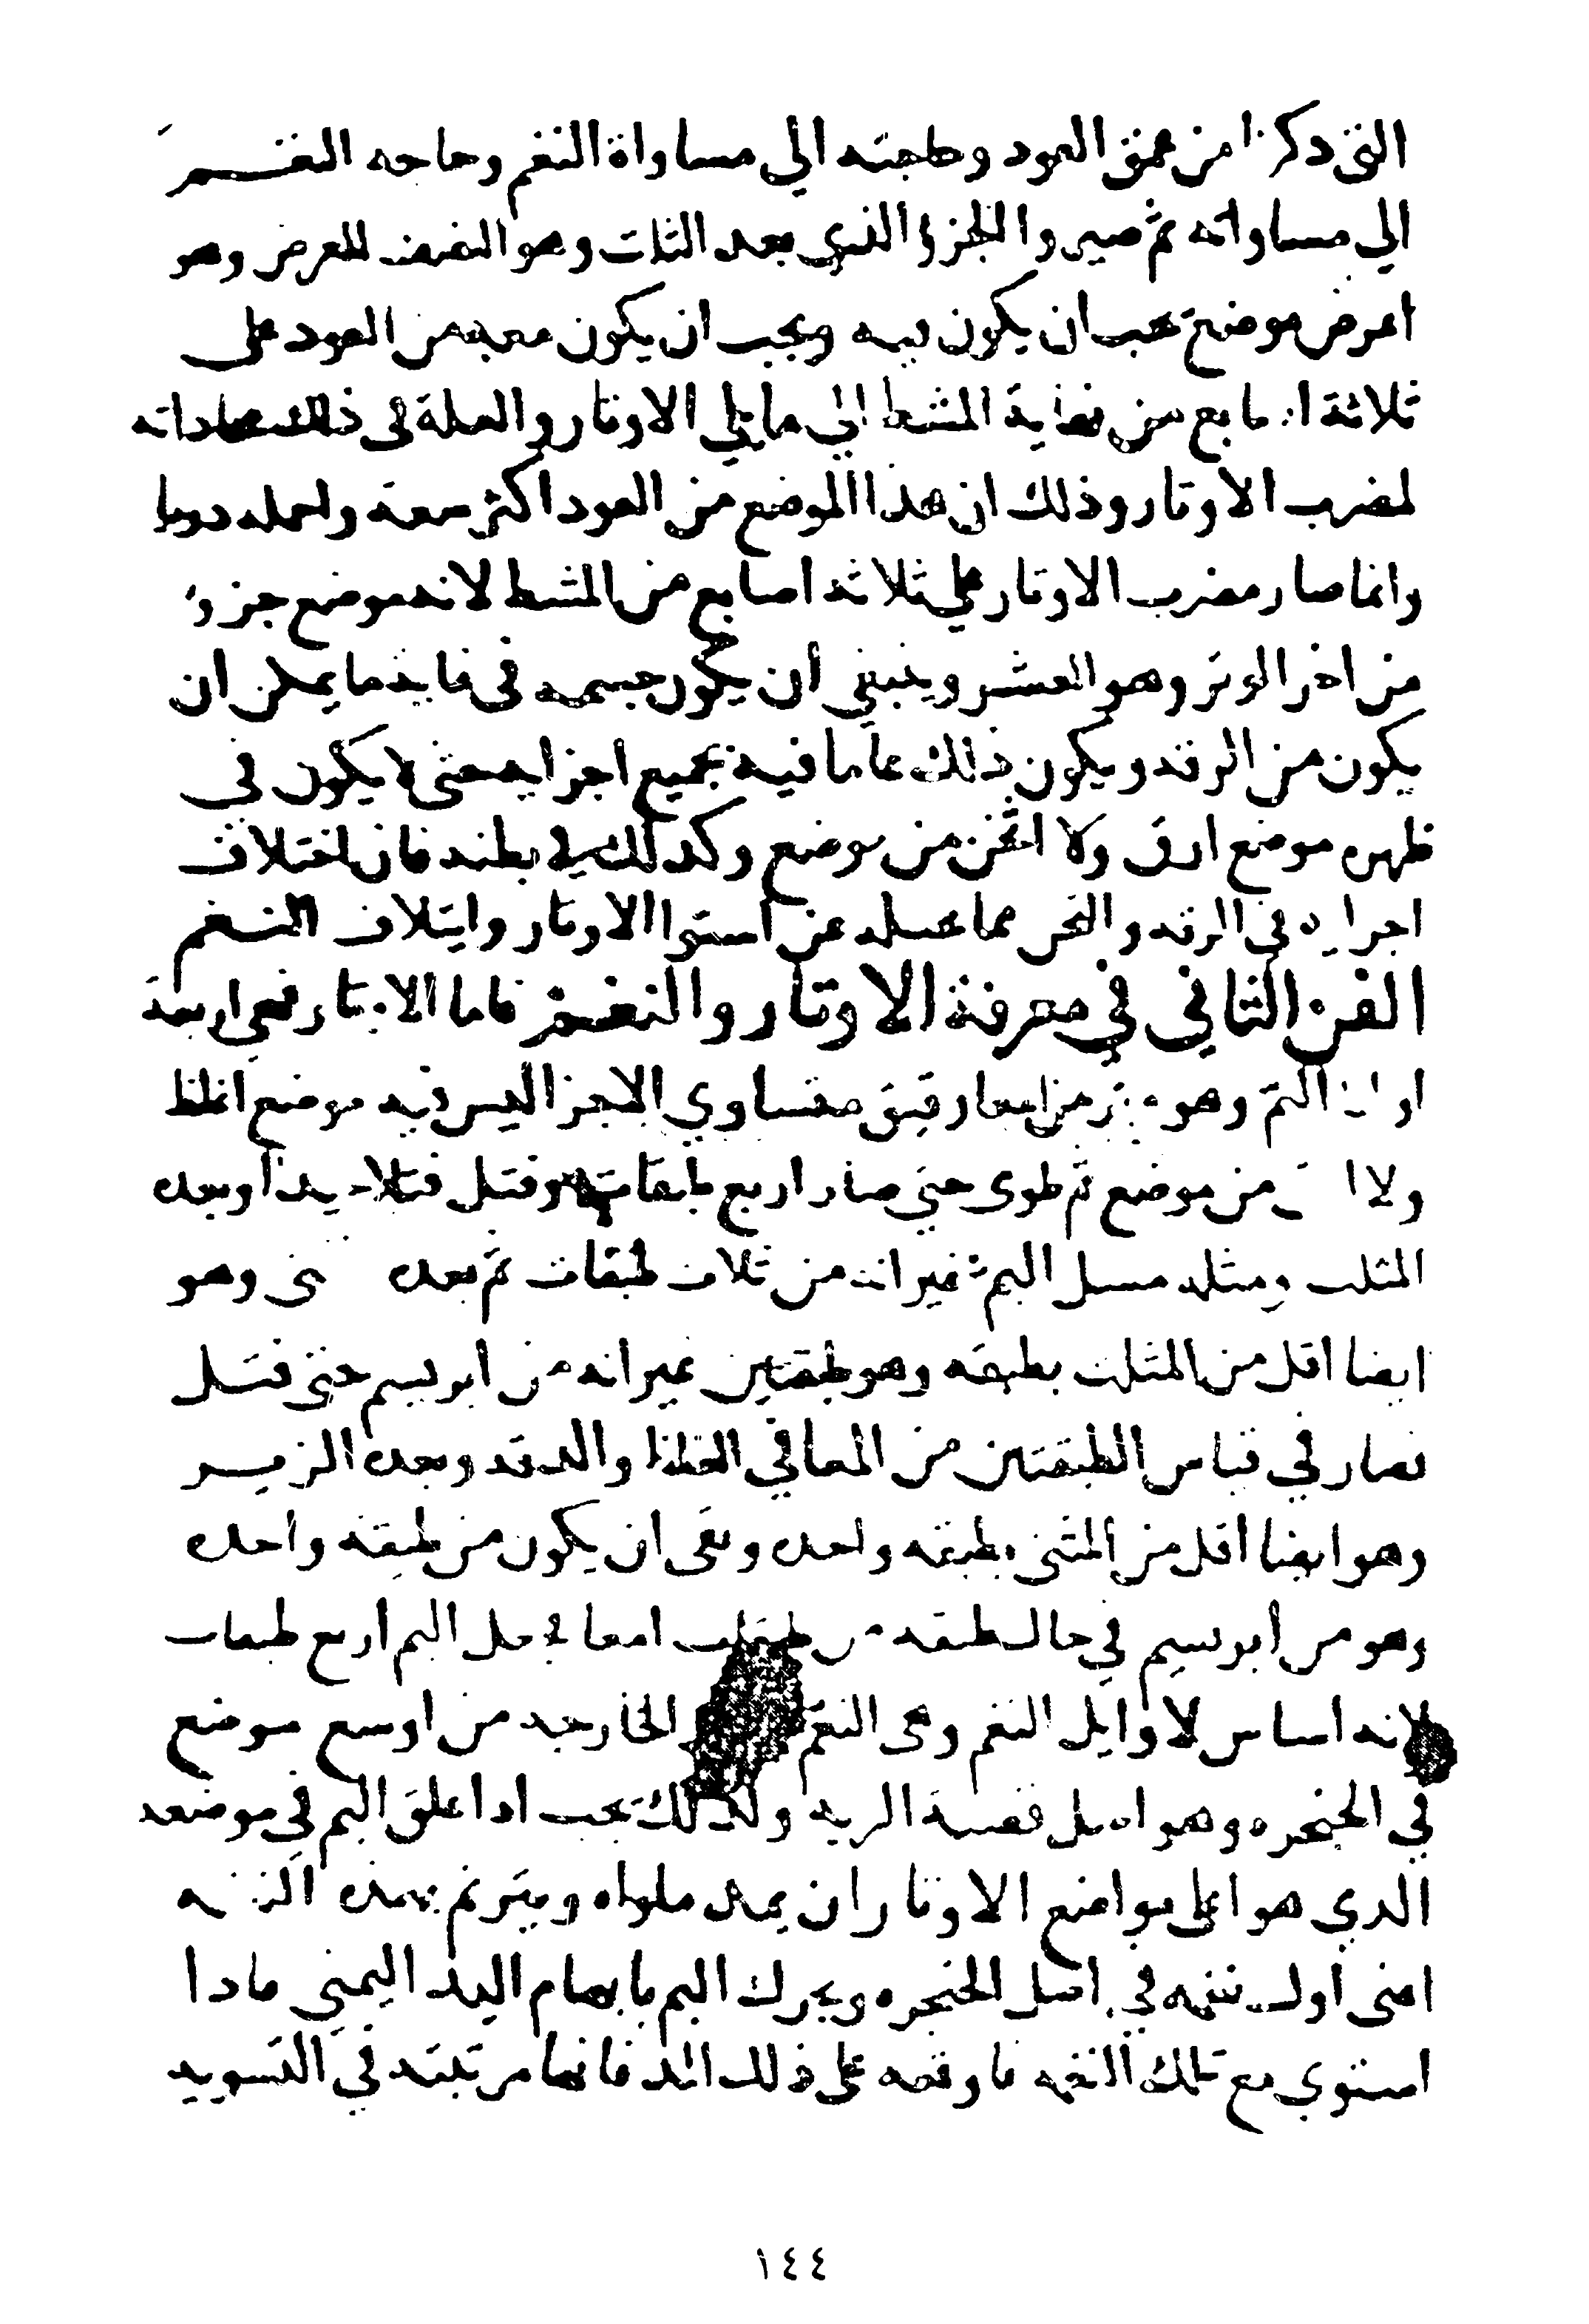 التى ذكرنا من عمق العود وحاجته الي مساواة النغم وحاجه النغم
الي مساواته ثم صيروا الجزؤ الذي بعد الثلث وهو النصف للعرض وهو
اعرض موضع يجب ان يكون فيه ويجب ان يكون معه من العود على
ثلاثة اصابع من نهاية المشط الي ما يلي الاوتار والعلة في ذلك محاذاته
لمضرب الاوتار وذلك ان هذا الموضع من العود اكثر سعة واجمله دويا
وانما صار مضرب الاوتار علي ثلاثه اصابع من المشط لانه موضع جزو
من اخر الوتر وهو العشر وينبغي أن يكون جسمه في غايه ما يمكن ان
يكون من الرقه ويكون ذلك عاما فيه بجميع اجزايه حتى لا يكون في
ظهره موضع ارق ولا اثخن من موضع وكذلك في بطنه فان اختلاف
اجزايه في الرقه والثخن مما يحيله عن استوا الاوتار وايتلاف النغم
الفن الثاني في معرفة الاوتار والنغم فاما الاوتار فهي اربعة
اولها البم وهو وتر من امعا رقيق متساوي الاجزا ليس فيه موضع اغلظ
ولا من موضع ثم طوي حتي صار اربع طبقات وفتل فتلا جيدا وبعده
المثلث ومثله مسل البم غير انه من ثلاث طبقات ثم بعده وهو
ايضا اقل من المثلث بطبقه وهو طبقتين غير انه من ابريسم حتى فتل
فصار في قياس الطبقتين من المعا في الغلظ والدقه وبعده الزير
وهو ايضا اقل من المثنى بطبقه واحده وبقى ان يكون من طبقه واحده
وهو من ابريسم في حال طبقه من طبقات امعا جعل البم اربع طبقات
لانه اساس لاوايل النغم وهى النغم الخارجه من اوسع موضع
في الحنجره وهو اصل قصبة الريه ولذلك يجب اذا علق البم في موضعه
الذي هو اعلى مواضع الاوتار ان يمد ملواه ويترنم بهذه النغمه
اعنى اول نغمه في اصل الحنجره ويحرك البم بابهام اليد اليمنى فاذا
استوي مع تلك النغمه فاوقفه على ذلك المد فانها مرتبته في التسويه
١٤٤